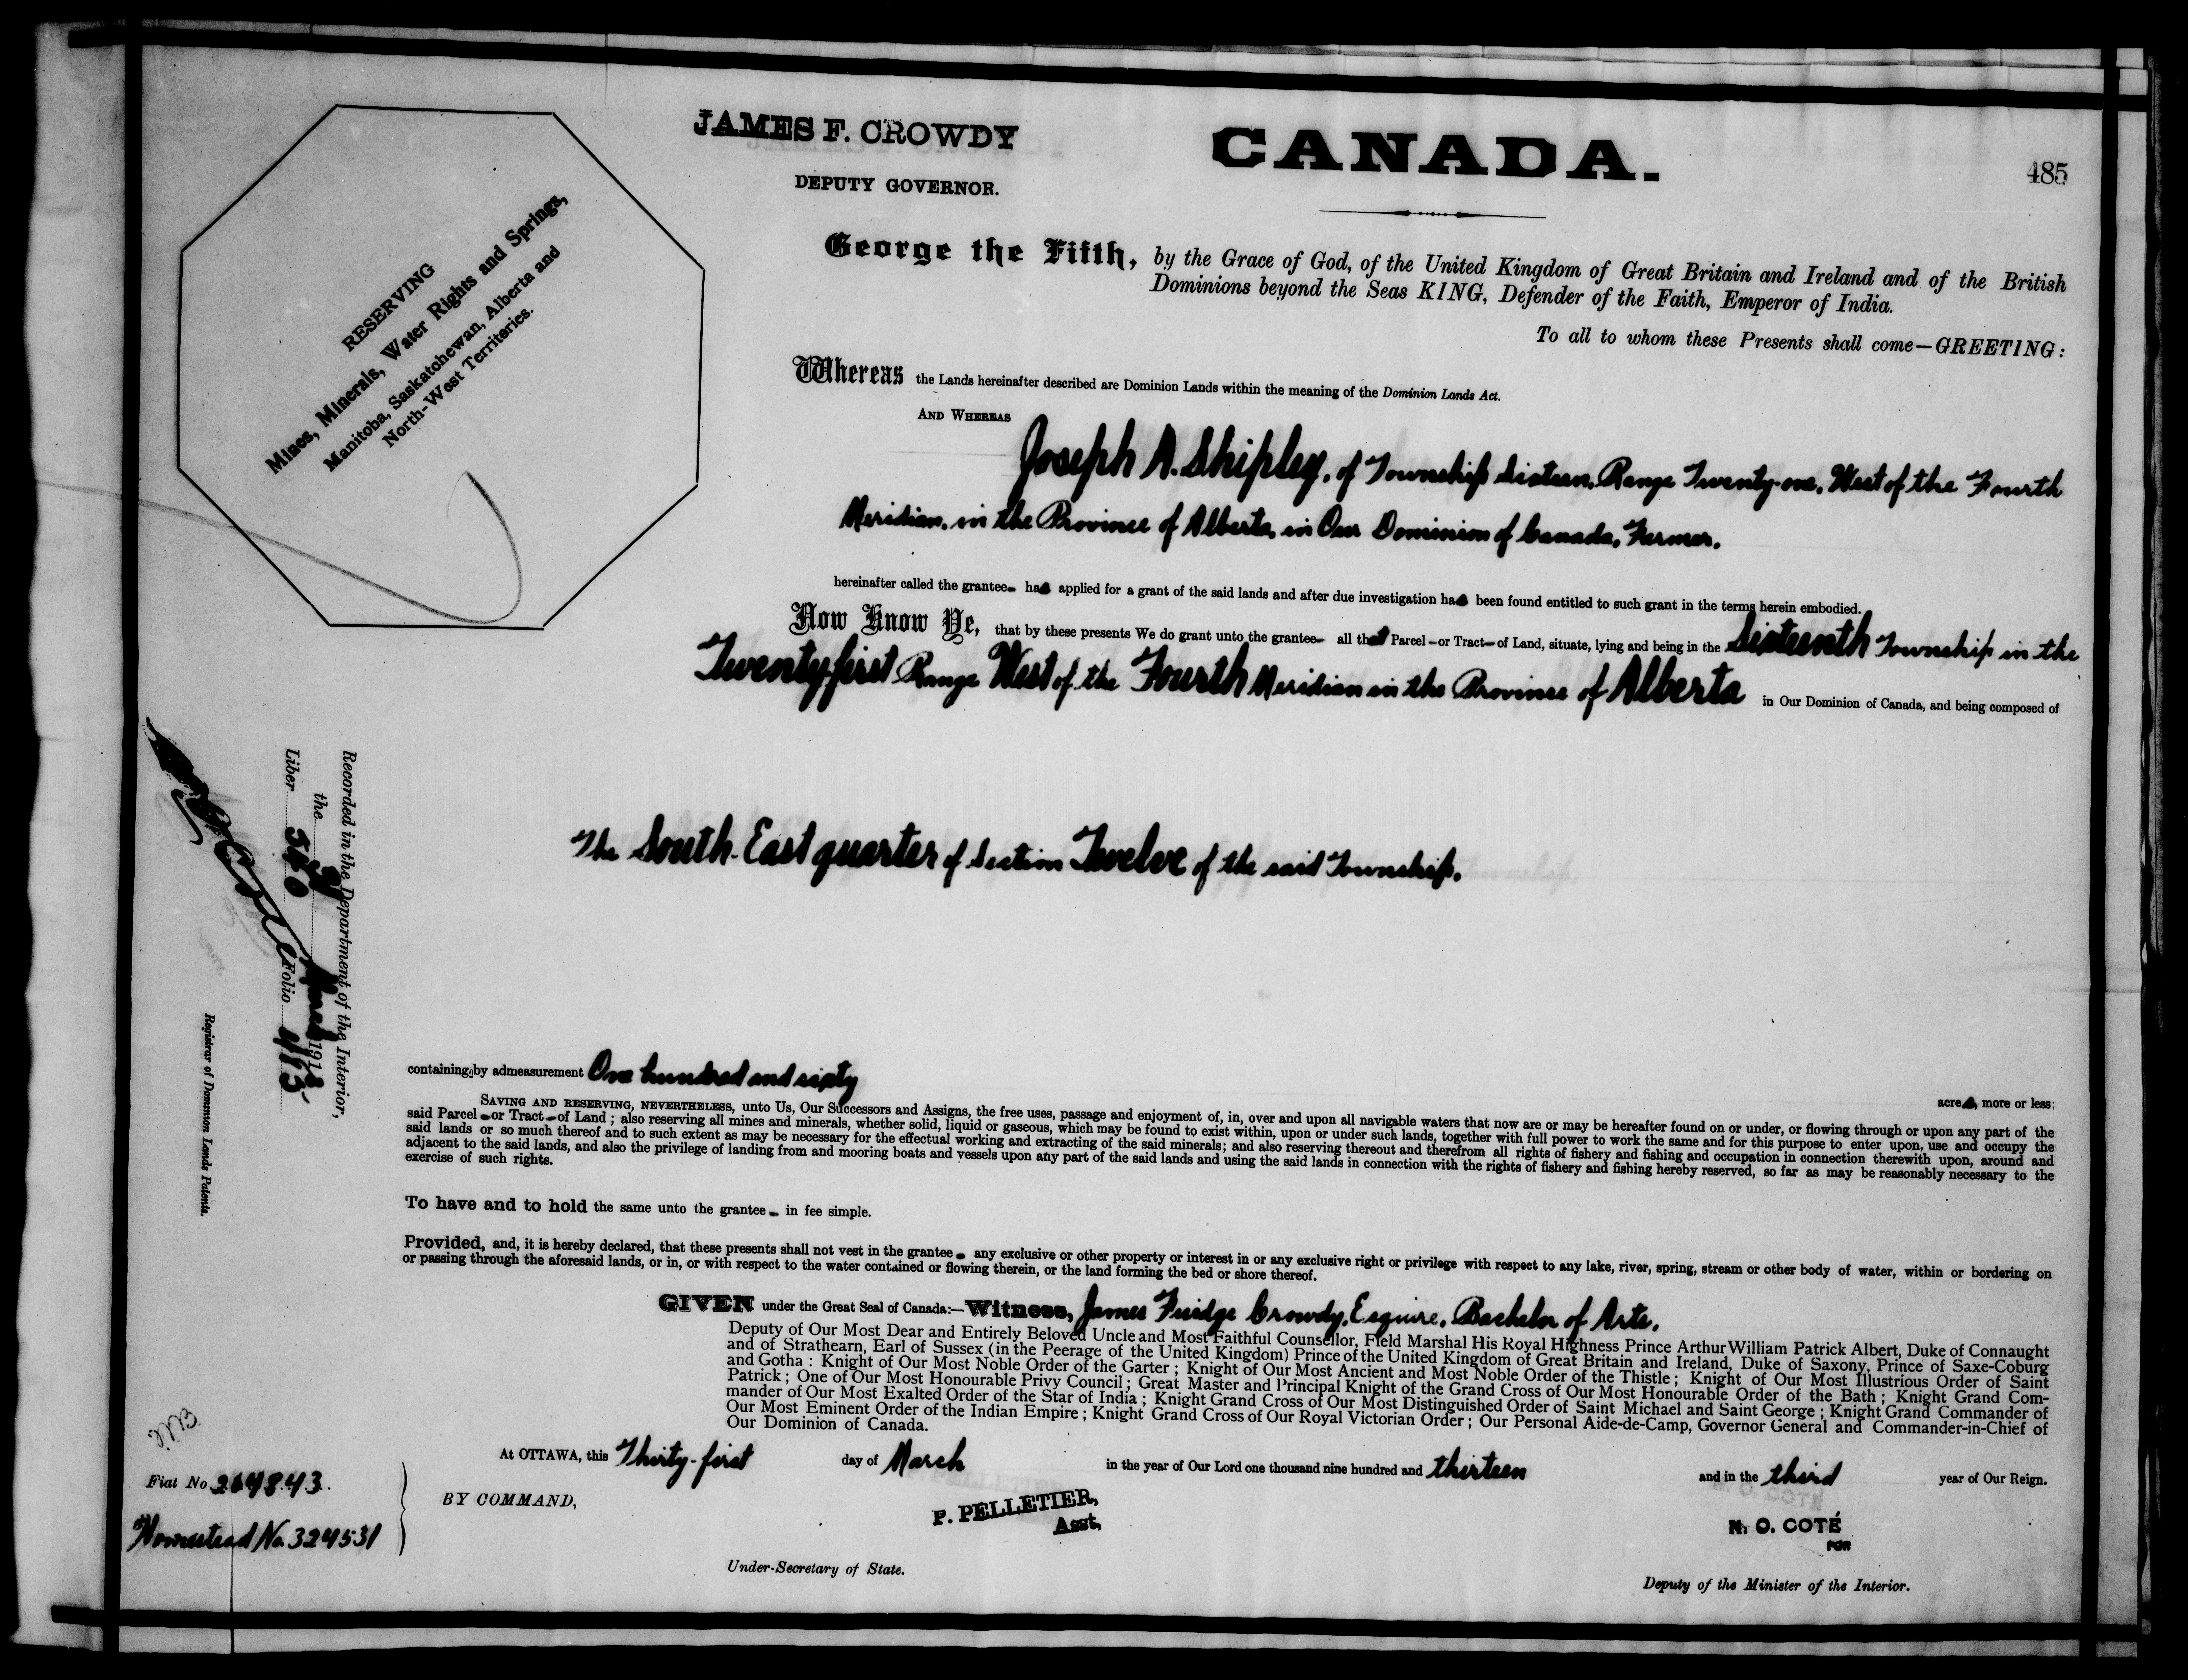 JAMES F. CROWDY
DEPUTY GOVERNOR.
CANADA.
485
RESERVING
Mines, Minerals, Water Rights and Springs,
Manitoba, Saskatchewan, Alberta and
North-West Territories.
George the Fifth, by the Grace of God, of the United Kingdom of Great Britain and Ireland and of the British
Dominions beyond the Seas KING, Defender of the Faith, Emperor of India.
To all to whom these Presents shall come—GREETING:
Whereas the Lands hereinafter described are Dominion Lands within the meaning of the Dominion Lands Act.
AND WHEREAS
Joseph A. Shipley, of Township Sixteen, Range Twenty-one, West of the Fourth
Meridian, in the Province of Alberta, in Our Dominion of Canada, Farmer.
hereinafter called the grantee has applied for a grant of the said lands and after due investigation has been found entitled to such grant in the terms herein embodied.
Now Know Ye, that by these presents We do grant unto the grantee all that Parcel or Tract of Land, situate, lying and being in the Sixteenth Township in the
Twenty-first Range West of the Fourth Meridian in the Province of Alberta in Our Dominion of Canada, and being composed of
The South-East quarter of Section Twelve of the said Township.
Recorded in the Department of the Interior,
the 31 March 1913
Liber 540 Folio 415
Registrar of Dominion Lands Patents.
containing by admeasurement One hundred and sixty
acres, more or less;
SAVING AND RESERVING, NEVERTHELESS, unto Us, Our Successors and Assigns, the free uses, passage and enjoyment of, in, over and upon all navigable waters that now are or may be hereafter found on or under, or flowing through or upon any part of the
said Parcel or Tract of Land; also reserving all mines and minerals, whether solid, liquid or gaseous, which may be found to exist within, upon or under such lands, together with full power to work the same and for this purpose to enter upon, use and occupy the
said lands or so much thereof and to such extent as may be necessary for the effectual working and extracting of the said minerals; and also reserving thereout and therefrom all rights of fishery and fishing and occupation in connection therewith upon, around and
adjacent to the said lands, and also the privilege of landing from and mooring boats and vessels upon any part of the said lands and using the said lands in connection with the rights of fishery and fishing hereby reserved, so far as may be reasonably necessary to the
exercise of such rights.
To have and to hold the same unto the grantee in fee simple.
Provided, and, it is hereby declared, that these presents shall not vest in the grantee any exclusive or other property or interest in or any exclusive right or privilege with respect to any lake, river, spring, stream or other body of water, within or bordering on
or passing through the aforesaid lands, or in, or with respect to the water contained or flowing therein, or the land forming the bed or shore thereof.
GIVEN under the Great Seal of Canada:—Witness, James Fuidge Crowdy, Esquire, Bachelor of Arts,
Deputy of Our Most Dear and Entirely Beloved Uncle and Most Faithful Counsellor, Field Marshal His Royal Highness Prince Arthur William Patrick Albert, Duke of Connaught
and of Strathearn, Earl of Sussex (in the Peerage of the United Kingdom) Prince of the United Kingdom of Great Britain and Ireland, Duke of Saxony, Prince of Saxe-Coburg
and Gotha: Knight of Our Most Noble Order of the Garter; Knight of Our Most Ancient and Most Noble Order of the Thistle; Knight of Our Most Illustrious Order of Saint
Patrick; One of Our Most Honourable Privy Council; Great Master and Principal Knight of the Grand Cross of Our Most Honourable Order of the Bath; Knight Grand Com-
mander of Our Most Exalted Order of the Star of India; Knight Grand Cross of Our Most Distinguished Order of Saint Michael and Saint George; Knight Grand Commander of
Our Most Eminent Order of the Indian Empire; Knight Grand Cross of Our Royal Victorian Order; Our Personal Aide-de-Camp, Governor General and Commander-in-Chief of
Our Dominion of Canada.
At OTTAWA, this Thirty-first day of March in the year of Our Lord one thousand nine hundred and thirteen and in the third year of Our Reign.
Fiat No 264843
Homestead No. 324531
BY COMMAND,
P. PELLETIER,
Asst.
Under-Secretary of State.
N. O. COTÉ
FOR
Deputy of the Minister of the Interior.